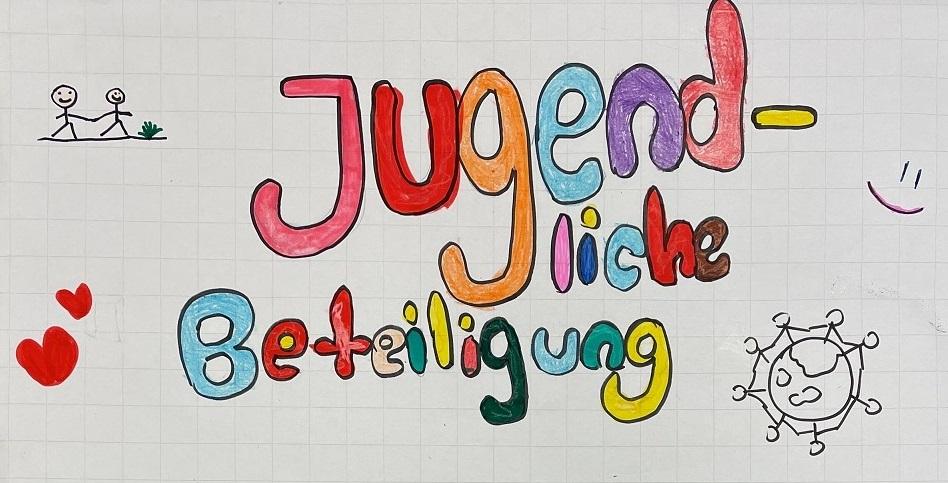 Jugend-
liche
Beteiligung